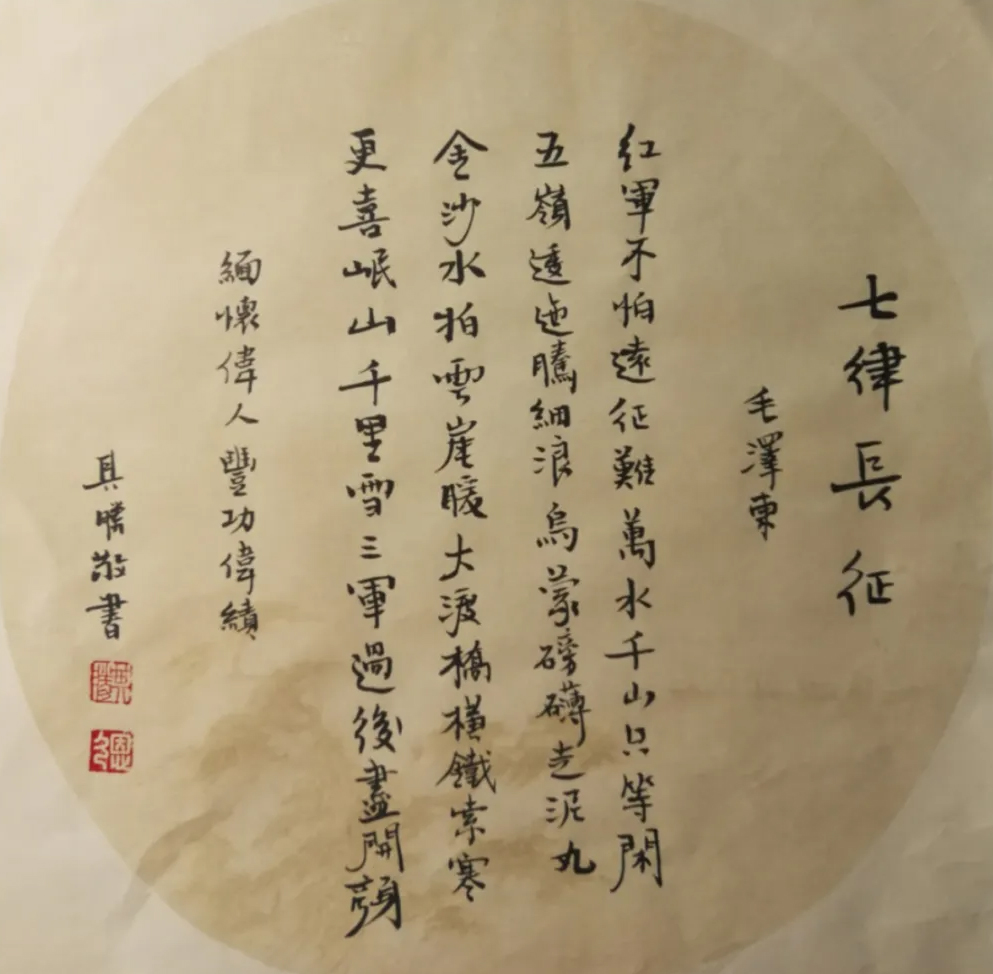 七律長征
毛澤東
紅軍不怕遠征難萬水千山只等閑
五嶺逶迤騰細浪烏蒙磅礴走泥丸
金沙水拍雲崖暖大渡橋橫鐵索寒
更喜岷山千里雪三軍過後盡開顏
緬懷偉人豐功偉績
具騰敬書